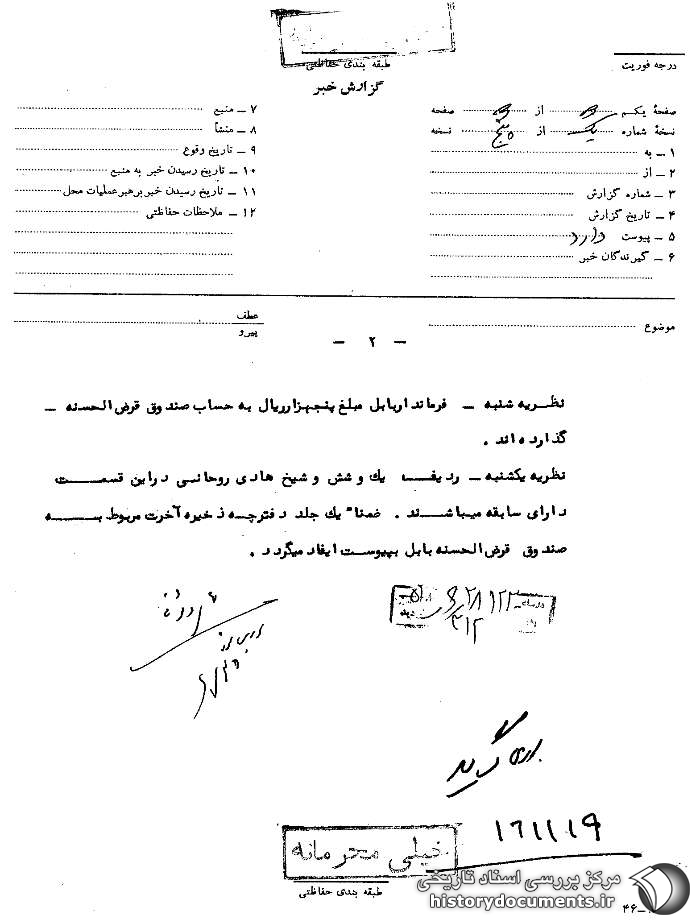 طبقه بندی حفاظتی
درجه فوریت
گزارش خبر
صفحهٔ یکم از صفحه
نسخهٔ شماره یک از پنج نسخه
۱ ــ به
۲ ــ از
۳ ــ شماره گزارش
۴ ــ تاریخ گزارش
۵ ــ پیوست دارد
۶ ــ گیرندگان خبر
۷ ــ منبع
۸ ــ منشأ
۹ ــ تاریخ وقوع
۱۰ ــ تاریخ رسیدن خبر به منبع
۱۱ ــ تاریخ رسیدن خبر برهبر عملیات محل
۱۲ ــ ملاحظات حفاظتی
موضوع
عطف
پیرو
ــ ۲ ــ
نظریه شنبه ــ فرماندار بابل مبلغ پنجهزار ریال به حساب صندوق قرض الحسنه ــ
گذارده اند .
نظریه یکشنبه ــ ردیف یك و شش و شیخ هادی روحانی در این قسمت
دارای سابقه میباشند . ضمنا" یك جلد دفترچه ذخیره آخرت مربوط به
صندوق قرض الحسنه بابل بپیوست ایفاد میگردد .
خیلی محرمانه
طبقه بندی حفاظتی
مرکز بررسی اسناد تاریخی
historydocuments.ir